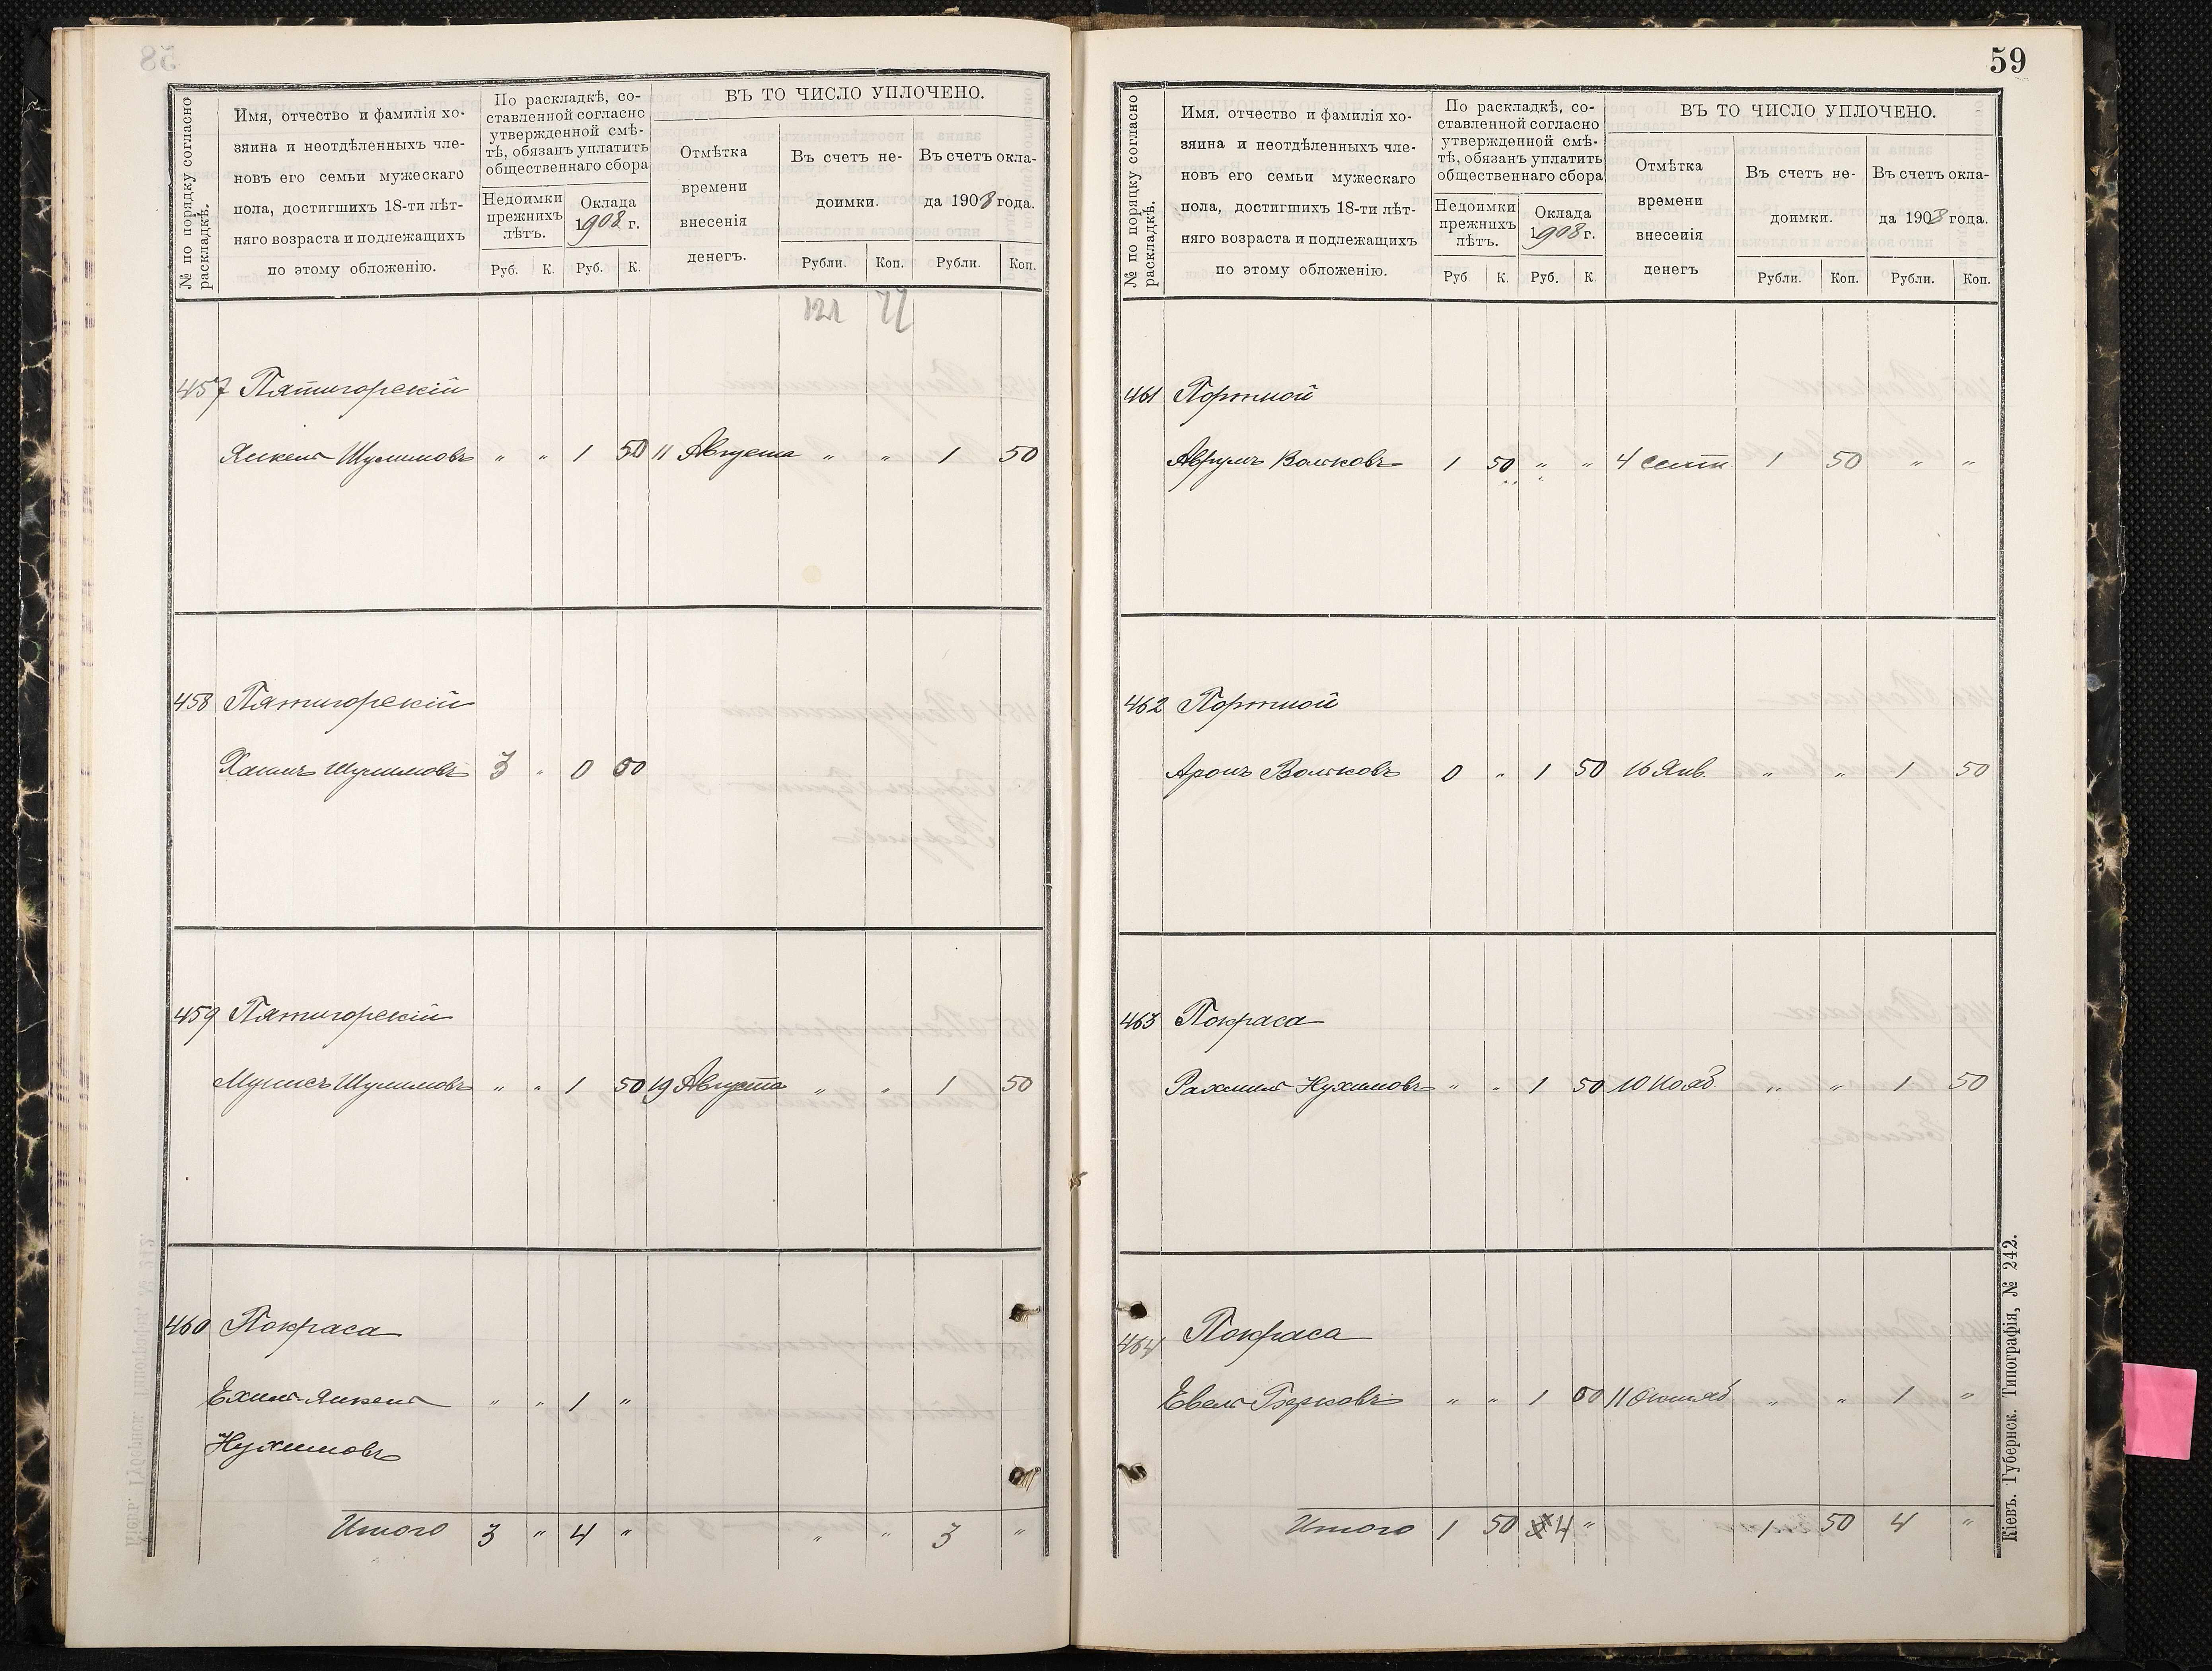 № по порядку согласно раскладкѣ.
Имя, отчество и фамилія хо-
зяина и неотдѣленныхъ чле-
новъ его семьи мужескаго
пола, достигшихъ 18-ти лѣт-
няго возраста и подлежащихъ
по этому обложенію.
По раскладкѣ, со-
ставленной согласно
утвержденной смѣ-
тѣ, обязанъ уплатить
общественнаго сбора
Недоимки
прежнихъ
лѣтъ.
Оклада
1908 г.
Руб. К. Руб. К.
ВЪ ТО ЧИСЛО УПЛОЧЕНО.
Отмѣтка
времени
внесенія
денегъ.
Въ счетъ не-
доимки.
Въ счетъ окла-
да 1908 года.
Рубли. Коп. Рубли. Коп.
121 77
457 Пятигорскій
Янкель Шулимовъ " " 1 50 11 Августа " " 1 50
458 Пятигорскій
Хаимъ Шулимовъ 3 " 0 50
459 Пятигорскій
Мунисъ Шулимовъ " " 1 50 19 Августа " " 1 50
460 Покраса
Ехилъ-Янкель " " 1 "
Нухимовъ
Итого 3 " 4 " " " 3 "
59
№ по порядку согласно раскладкѣ.
Имя, отчество и фамилія хо-
зяина и неотдѣленныхъ чле-
новъ его семьи мужескаго
пола, достигшихъ 18-ти лѣт-
няго возраста и подлежащихъ
по этому обложенію.
По раскладкѣ, со-
ставленной согласно
утвержденной смѣ-
тѣ, обязанъ уплатить
общественнаго сбора
Недоимки
прежнихъ
лѣтъ.
Оклада
1908 г.
Руб. К. Руб. К.
ВЪ ТО ЧИСЛО УПЛОЧЕНО.
Отмѣтка
времени
внесенія
денегъ
Въ счетъ не-
доимки.
Въ счетъ окла-
да 1908 года.
Рубли. Коп. Рубли. Коп.
461 Портной
Аврумъ Волковъ 1 50 " " 4 сент 1 50 " "
462 Портной
Аронъ Волковъ 0 " 1 50 16 Янв. " " 1 50
463 Покраса
Рахмиль Нухимовъ " " 1 50 10 Нояб. " " 1 50
464 Покраса
Евель Берковъ " " 1 00 11 Октяб. " " 1 "
Итого 1 50 4 " 1 50 4 "
Кіевъ. Губернск. Типографія, № 242.